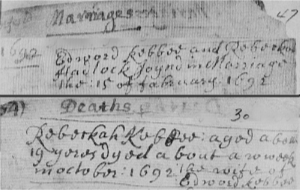 Marriages
47
1692
Edword Kebbee and Rebeckah
Hadlock Joynd in Marriage
the: 15 of fabruary: 1692
Deaths
30
Rebeckah Kebbee: aged about
19 yeres dyed about a week
in octobor: 1692 the wife of
Edword Kebbee